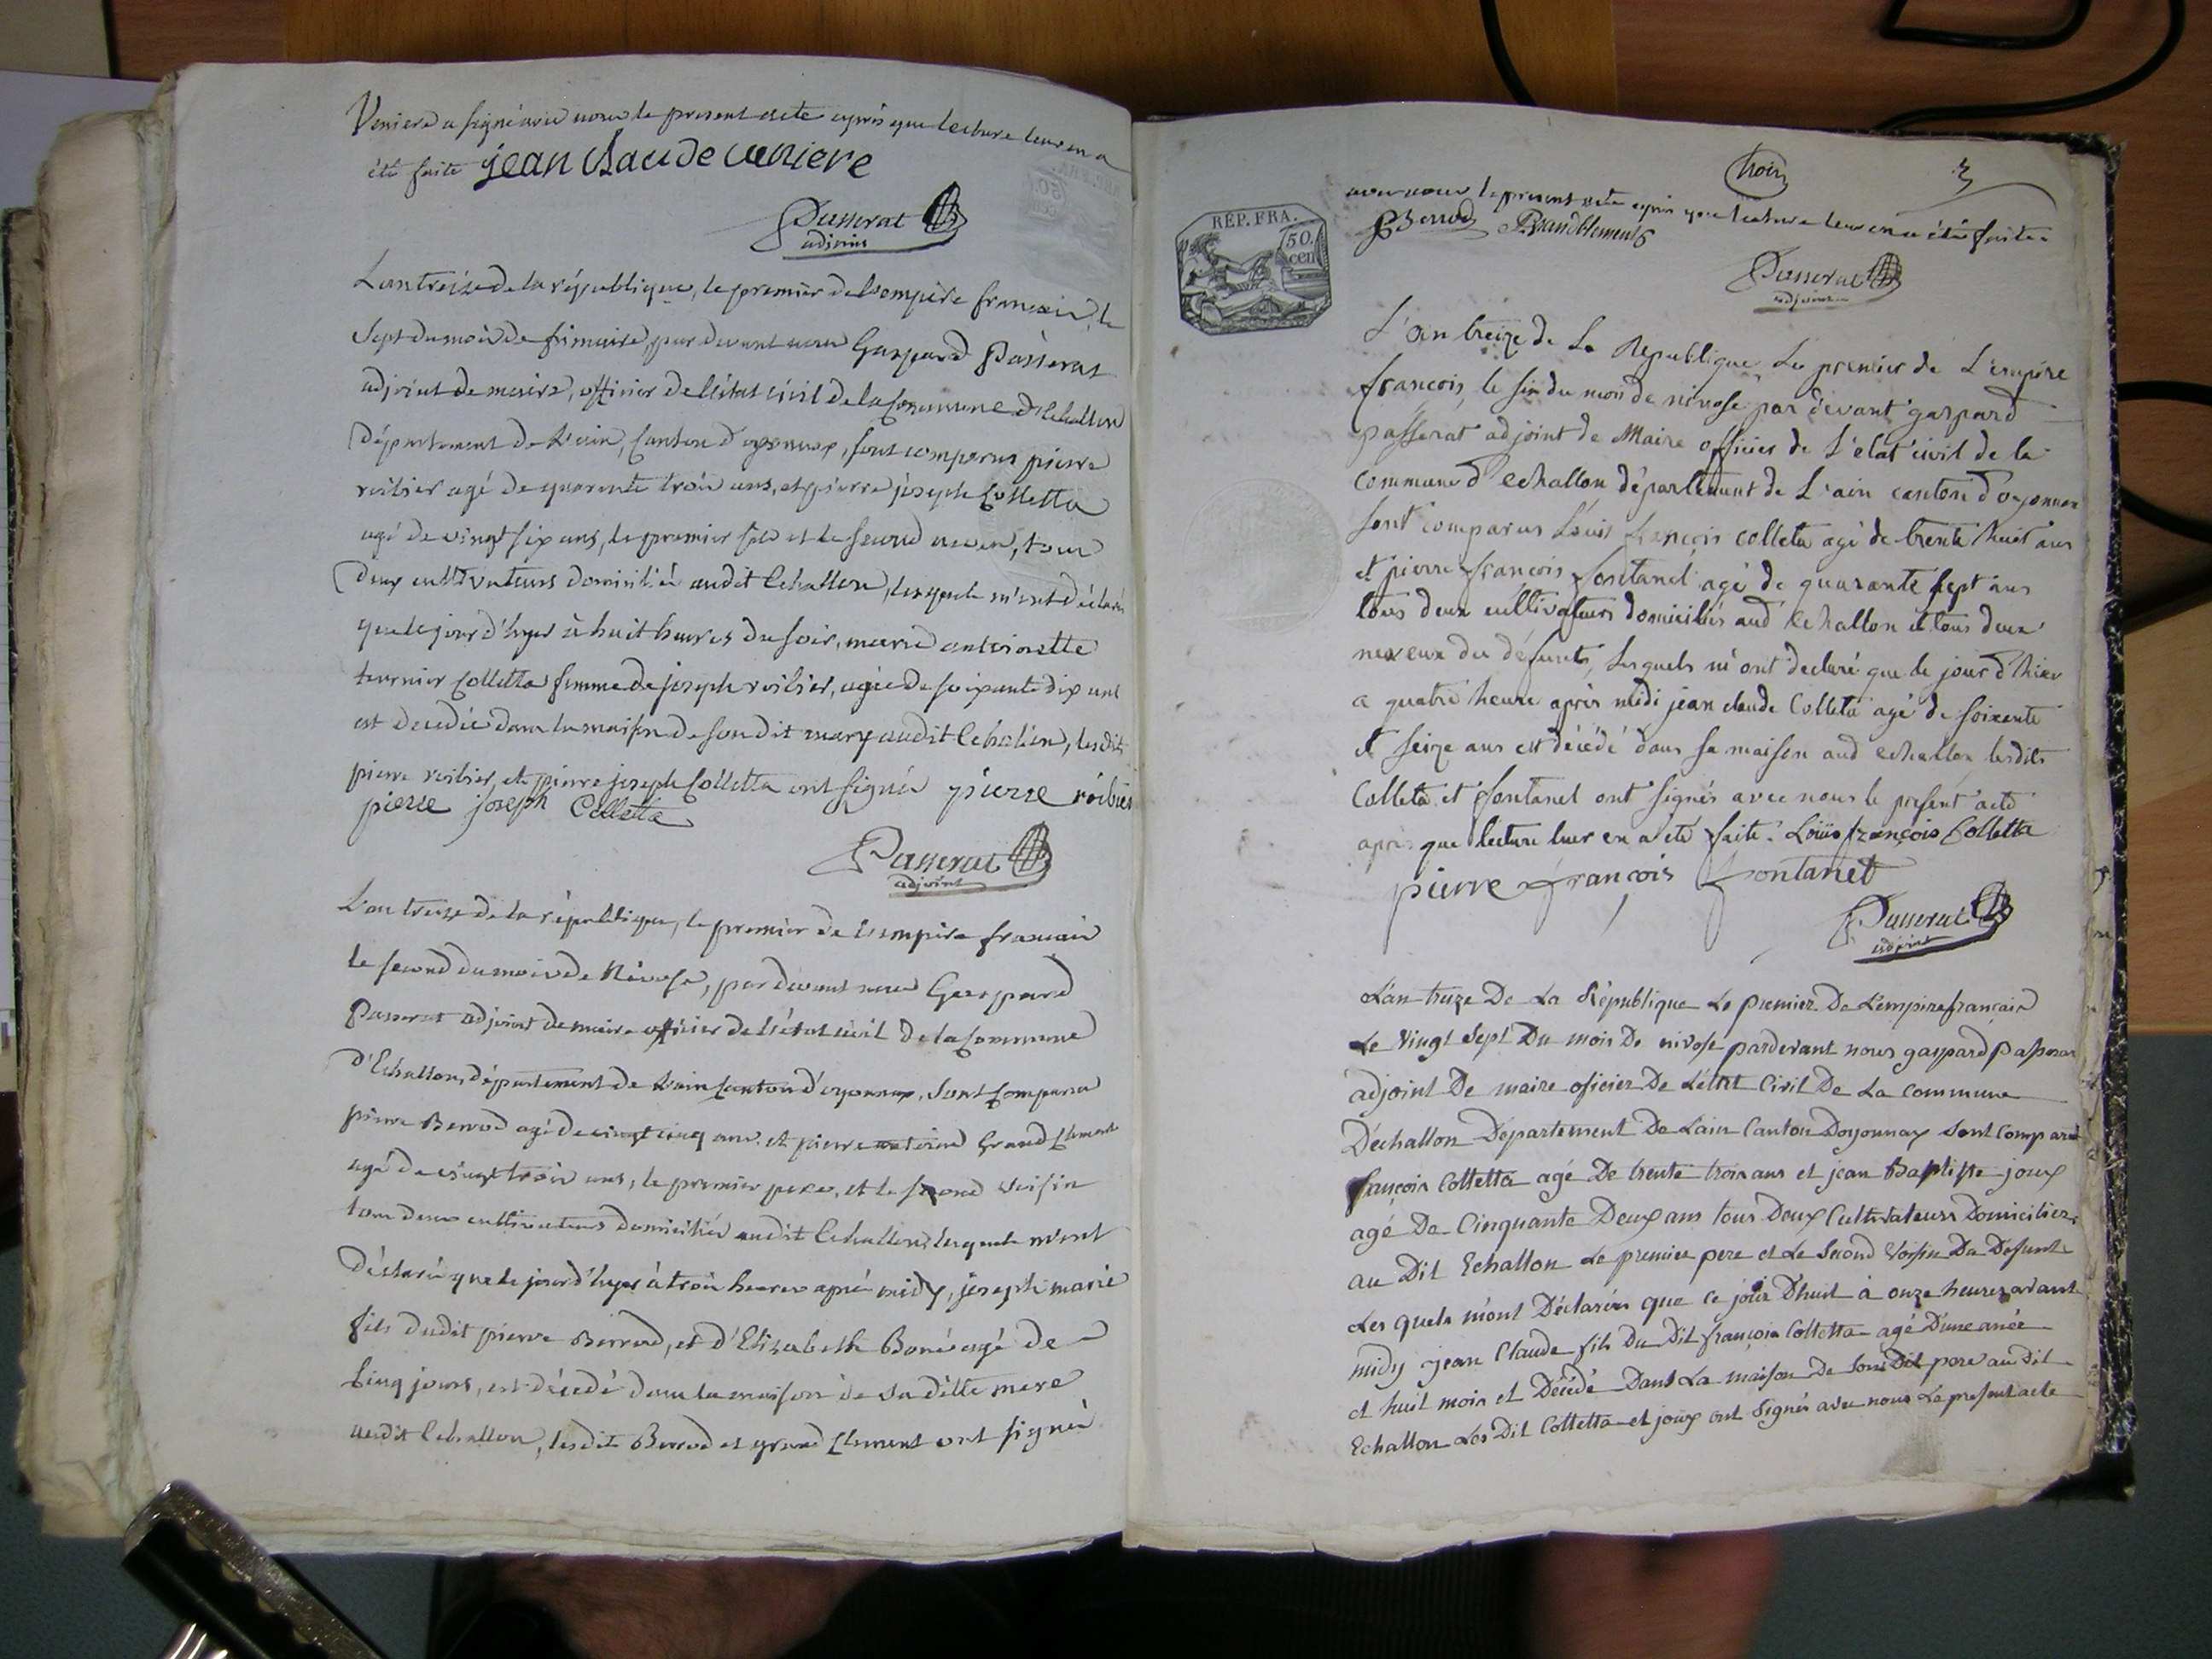 Veniere a signé avec nous le present acte après que lecture leur en a
été faite jean claude veniere
Passerat
adjoint
L'an treize de la république, le premier de l'empire francais, le
sept du mois de frimaire, par devant nous Gaspard Passerat
adjoint de maire, officier de l'état civil de la Commune d'Echallon
département de l'ain, Canton d'oyonnax, sont comparus pierre
roibier agé de quarente trois ans, et pierre joseph Colletta
agé de vingt six ans, le premier fils et le second neveu, tous
deux cultivateurs domiciliés audit Echallon, lesquels m'ont déclaré
que le jour d'hyer à huit heures du soir, marie antoinette
tournier Colletta femme de joseph roibier, agée de soixante dix ans
est decedée dans la maison de son dit mary audit Echallon, lesdits
pierre roibier et pierre joseph Colletta ont signés pierre roibier
pierre joseph Colletta
Passerat
adjoint
L'an treize de la république, le premier de l'empire francais
le second du mois de Nivose, par devant nous Gaspard
Passerat adjoint de maire officier de l'état civil de la Commune
d'Echallon, département de l'ain Canton d'oyonnax, sont Comparus
pierre Berrod agé de vingt cinq ans. et pierre antoine Grand Clement
agé de vingt trois ans, le premier pere, et le second voisin
tous deux cultivateurs domiciliés audit Echallon, lesquels m'ont
déclaré que le jour d'hyer à trois heures après midy, joseph marie
fils dudit pierre Berrod, et d'Elizabeth Boné agé de
Cinq jours, est décédé dans la maison de sa ditte mere
audit Echallon, lesdits Berrod et grand Clement ont signés
trois
3
avec nous le present acte après que lecture leur en a été faite
P Berrod P. Grandclement
Passerat
adjoint
RÉP. FRA.
50.
cen
L'an treize de La Republique Le premier de L'empire
françois, le six du mois de nivose par devant gaspard
passerat adjoint de Maire officier de L'état civil de la
commune d'echallon département de L'ain canton d'oyonnax
sont comparus Louis françois colleta agé de trente huit ans
et pierre françois fontanel agé de quarante sept ans
tous deux cultivateurs domiciliés aud Echallon et tous deux
neveux du défunts, lesquels m'ont declaré que le jour d'hier
a quatre heure après midi jean claude Colleta agé de soixente
et seize ans est décédé dans sa maison aud echallon lesdits
Colleta et fontanel ont signés avec nous le present acte
après que lecture leur en a eté faite. Loüis françois Colletta
pierre françois fontanet
Passerat
adjoint
L'an treize De La République Le premier De L'empire francais
Le Vingt Sept Du mois De nivose pardevant nous gaspard Passerat
adjoint De maire oficier De L'état Civil De La Commune
D'échallon Département De L'ain Canton Doyonnax Sont Comparu
françois Colletta agé De trente trois ans et jean Baptiste joux
agé De Cinquante Deux ans tous Deux Cultivateurs Domiciliez
au Dit Echallon Le premier pere et Le Second Voisin Du Defunt
Les quels m'ont Déclarés que ce jour D'huit à onze heures avant
midy jean Claude fils Du Dit françois Colletta agé D'une anée
et huit mois et Décédé Dans La maison De Son Dit pere au Dit
Echallon Les Dit Colletta et joux ont Signés avec nous Le present acte